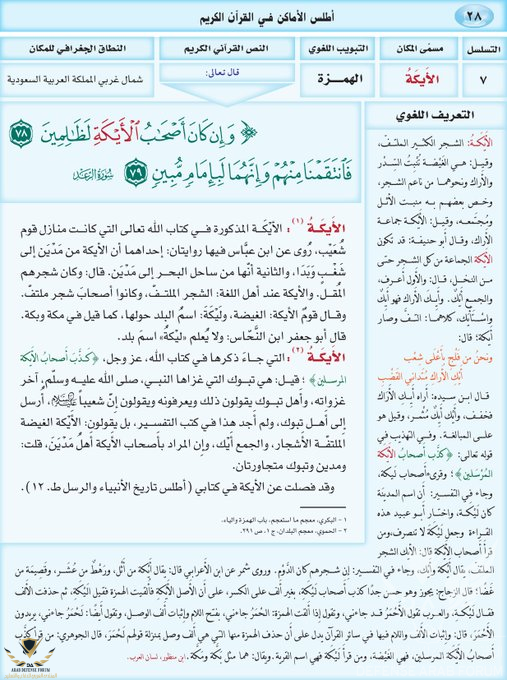 ٢٨
أطلس الأماكن في القرآن الكريم
التسلسل
مسمّى المكان
التبويب اللغوي
النص القرآني الكريم
النطاق الجغرافي للمكان
٧
الأَيكَة
الهمـزة
قال تعالى:
شمال غربي المملكة العربية السعودية
﴿ وَإِن كَانَ أَصْحَابُ الْأَيْكَةِ لَظَالِمِينَ ٧٨
فَانتَقَمْنَا مِنْهُمْ وَإِنَّهُمَا لَبِإِمَامٍ مُّبِينٍ ٧٩
التعريف اللغوي
الأَيْكَة: الشجر الكثير الملتف،
وقيل: هي الغَيْضَة تُنْبِتُ السِّدْر
والأَراك ونحوهما من ناعم الشجر،
وخص بعضهم به منبت الأَثل
ومُجتمعه، وقيل: الأَيْكة جماعة
الأَراك، وقال أبو حنيفة: قد تكون
الأَيكة الجماعة من كل الشجر حتى
من النخل، قال: والأول أعرف،
والجمع أَيْكٌ. وأَيِكَ الأَراك فهو أَيِكٌ
واسْتَأْيَك، كلاهما: التفَّ وصار
أَيْكة؛ قال:
ونحنُ من فَلْجٍ بأَعْلى شعْب
أَيْكِ الأَراكِ مُتَداني القَضْبِ
قال ابن سيده: أراه أَيِكِ الأَراك
فخفف، وأَيْك أَيِك مُثْمِر، وقيل هو
على المبالغة. وفي التهذيب في
قوله تعالى: ﴿كَذَّبَ أصحابُ الأَيْكة
المُرْسَلين﴾؛ وقرئ أصحاب لَيْكة،
وجاء في التفسير: أن اسم المدينة
كان لَيْكة، واختار أبو عبيد هذه
القراءة وجعل لَيْكة لا تنصرف، ومن
قرأ أصحاب الأَيْكة قال: الأَيْك الشجر
الأَيْكَـةُ (١): الأيْكَة المذكورة في كتاب الله تعالى التي كانت منازل قوم
شُعَيْب، رُوى عن ابن عبّاس فيها روايتان: إحداهما أن الأيكة من مَدْيَن إلى
شَغْـبٍ وَبَدَا، والثانية أنَّها من ساحل البحر إلى مَدْيَن. قال: وكان شجرهم
المُقْـل. والأيكة عند أهل اللغة: الشجر الملتـف، وكانوا أصحابَ شجر ملتفّ.
وقال قومٌ الأيْكَة: الغيضة، ولَيْكَةُ: اسمُ البلد حولها، كما قيل في مكة وبكة.
قال أبو جعفر ابن النَّحَّاس: ولا يُعلم «ليْكة» اسم بلد.
الأَيْكَـةُ (٢): التي جـاءَ ذكرها في كتاب الله، عز وجل، ﴿كَـذَّب أصحابُ الأيكة
المرسلين﴾؛ قيـل: هي تبوك التي غزاها النبي، صلى الله عليـه وسـلّم، آخر
غزواته، وأهل تبوك يقولون ذلك ويعرفونه ويقولون إنّ شعيباً، أُرسل
إلى أهـل تبوك، ولم أجد هذا في كتب التفسـير، بل يقولون: الأيكة الغيضة
الملتفّـة الأشجار، والجمع أَيْك، وإن المراد بأصحاب الأيكة أهلُ مَدْيَن، قلت:
ومدين وتبوك متجاورتان.
وقد فصلت عن الأيكة في كتابي ( أطلس تاريخ الأنبياء والرسل ط. ١٢ ).
١ - البكري، معجم ما استعجم، باب الهمزة والياء.
٢ - الحموي، معجم البلدان، ج ١، ص ٢٩١.
الملتف، يقال أَيْكة وأَيْك، وجاء في التفسير: إن شجرهم كان الدَّوْم. وروى شمر عن ابن الأعرابي قال: يقال أَيْكة من أَثْل، ورَهْطٌ من عُشَر، وقَصِيمَة من
غَضًا؛ قال الزجاج: يجوز وهو حسن جدّاً كذب أصحاب لَيْكَةِ، بغير ألف على الكسر، على أن الأصل الأَيْكة فألقيت الهمزة فقيل الَيْكة، ثم حذفت الألف
فقال لَيْكة، والعرب تقول الأَحْمَرُ قد جاءني، وتقول إذا ألقت الهمزة: الَحْمَرُ جاءني، بفتح اللام وإثبات ألف الوصل، وتقول أيضاً: لَحْمَرُ جاءني، يريدون
الأَحْمَرَ؛ قال: وإثبات الألف واللام فيها في سائر القرآن يدل على أن حذف الهمزة منها التي هي ألف وصل بمنزلة قولهم لَحْمَر، قال الجوهري: من قرأ كذب
أصحابُ الأَيْكة المرسلين، فهي الغَيْضة، ومن قرأ لَيْكة فهي اسم القرية. ويقال: هما مثل بَكَّة ومَكَّة. ابن منظور، لسان العرب.
ARAB DEFENSE FORUM